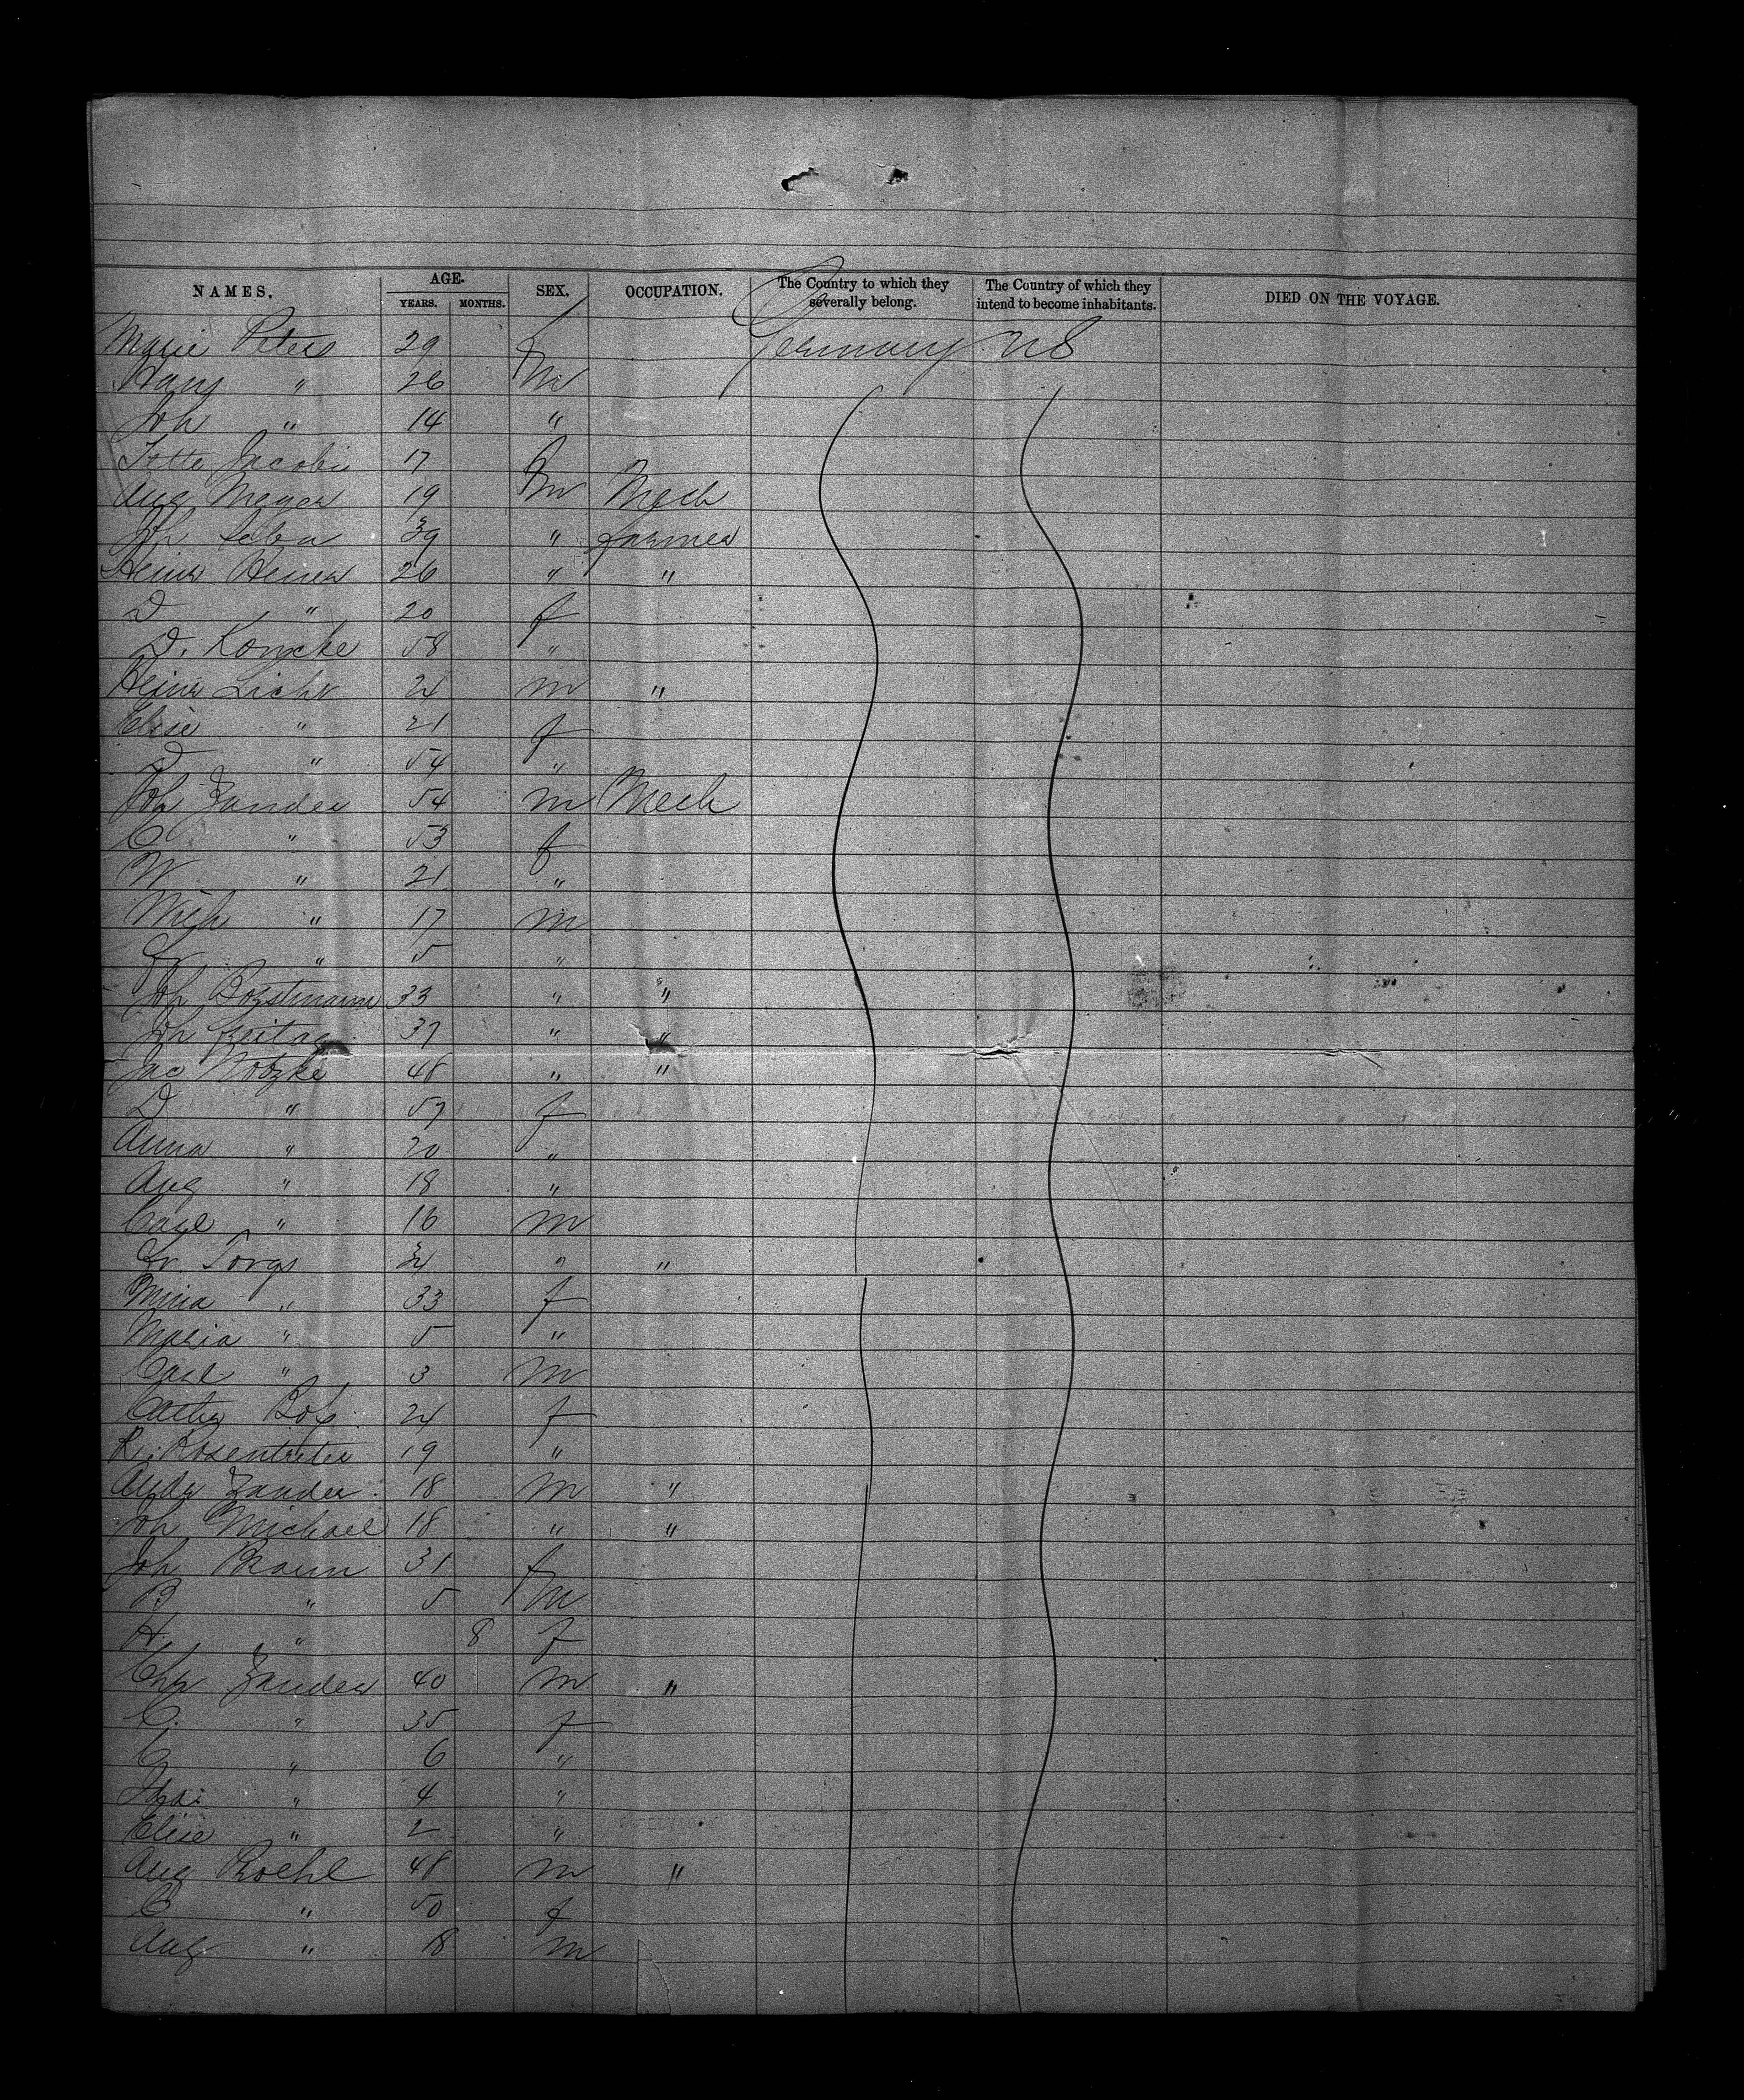 NAMES. AGE. YEARS. MONTHS. SEX. OCCUPATION. The Country to which they severally belong. The Country of which they intend to become inhabitants. DIED ON THE VOYAGE.
Marie Peters 29 f Germany US
Hans " 26 m
Joh " 14 "
Jette Jacobi 17 f
Aug Meyer 19 m Mech
Joh 39 " farmer
Heinr 26 " "
D " 20 f
D. Komcke 58 "
Heinr Licht 24 m "
Elise " 21 f
D " 54 "
Joh Zander 54 m Mech
C " 53 f
W " 21 "
Wilh " 17 m
Fr " 5 "
Joh Borstmann 33 " "
Joh Freitag 37 " "
Jac Notzke 48 " "
D " 57 f
Anna " 20 "
Aug " 18 "
Carl " 16 m
Fr. Torgs " "
Mina " 33 f
Maria " 5 "
Carl " 3 m
Box 24 f
R. Rosentreter 19 "
Andr Zander 18 m "
Joh Michael 18 " "
Joh Braun 31 f
B " 5 m
H " 8 f
Chr Zander 40 m "
C. " 35 f
C " 6 "
" 4 "
Elise " 2 "
Aug Roehl 48 m "
C " 50 f
Aug " 18 m